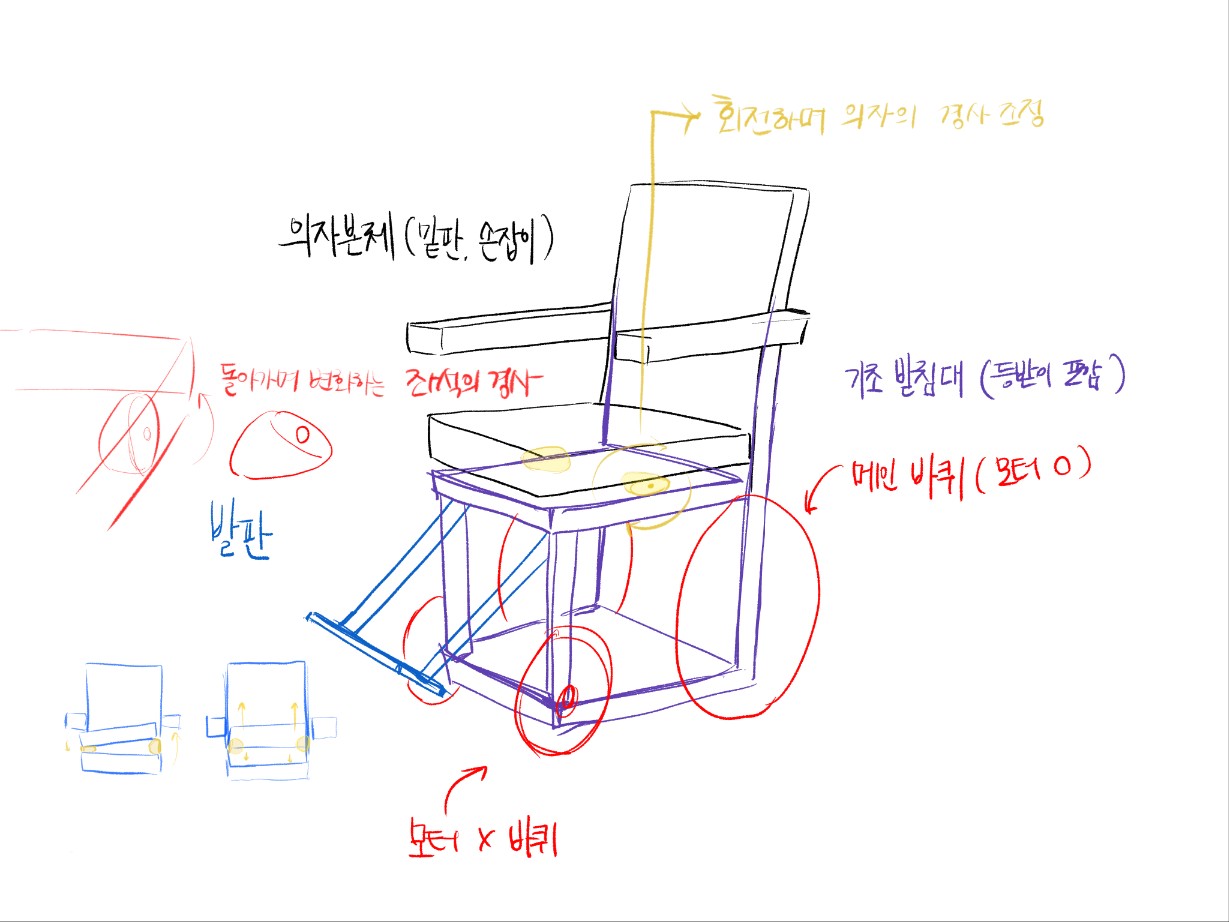 회전하며 의자의 경사 조정
의자본체 (밑판, 손잡이)
돌아가며 변화하는 좌석의 경사
기초 받침대 (등받이 포함)
메인 바퀴 (모터 O)
발판
모터 X 바퀴